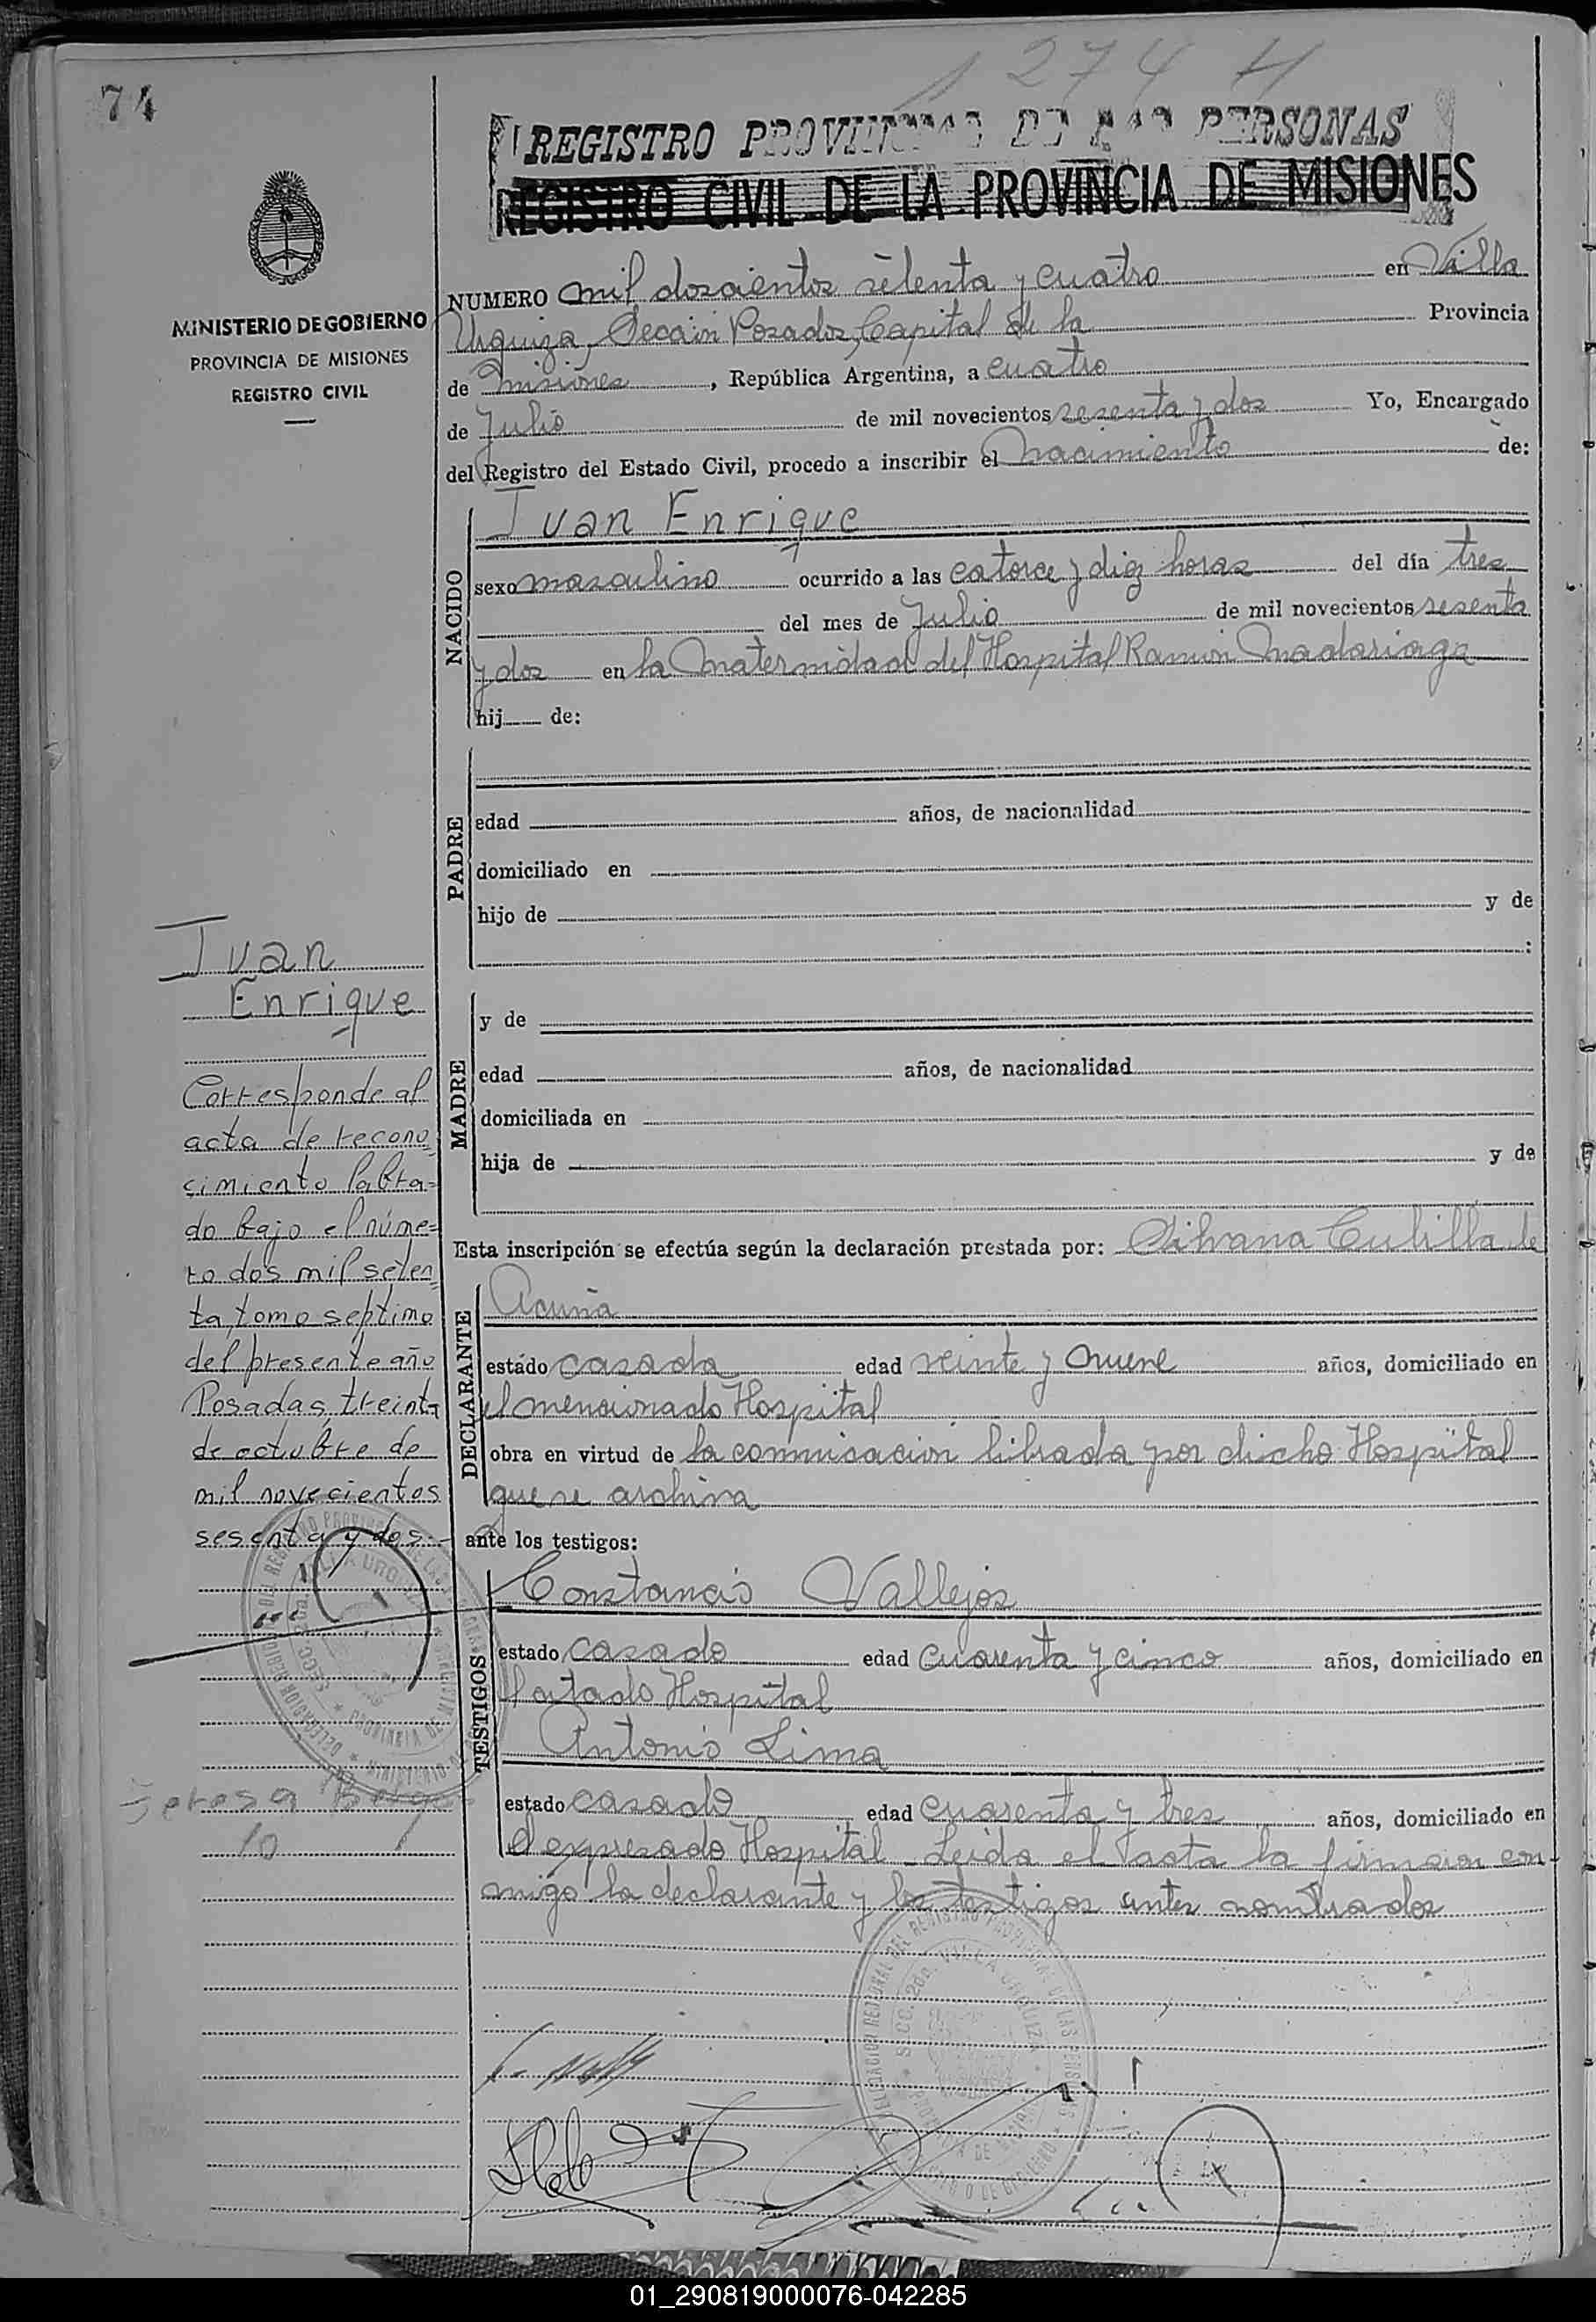 74
1274 H
REGISTRO PROVINCIAL DE LAS PERSONAS
REGISTRO CIVIL DE LA PROVINCIA DE MISIONES
MINISTERIO DE GOBIERNO
PROVINCIA DE MISIONES
REGISTRO CIVIL
NUMERO mil doscientos setenta y cuatro en Villa
Urquiza, Sección Posadas, Capital de la Provincia
de Misiones, República Argentina, a cuatro
de Julio de mil novecientos sesenta y dos Yo, Encargado
del Registro del Estado Civil, procedo a inscribir el Nacimiento de:
NACIDO
Ivan Enrique
sexo masculino ocurrido a las catorce y diez horas del día tres
del mes de Julio de mil novecientos sesenta
y dos en la Maternidad del Hospital Ramon Madariaga
hij de:
PADRE
edad años, de nacionalidad
domiciliado en
hijo de y de
:
MADRE
y de
edad años, de nacionalidad
domiciliada en
hija de y de
Esta inscripción se efectúa según la declaración prestada por: Silvana Cubilla de
DECLARANTE
Acuña
estado casada edad veinte y nueve años, domiciliado en
el mencionado Hospital
obra en virtud de la comunicación librada por dicho Hospital
que se archiva
ante los testigos:
TESTIGOS
Constancio Vallejos
estado casado edad cuarenta y cinco años, domiciliado en
el citado Hospital
Antonio Lima
estado casado edad cuarenta y tres años, domiciliado en
el expresado Hospital Leida el acta la firmaron con-
migo la declarante y los testigos antes nombrados
Ivan
Enrique
Corresponde al
acta de recono
cimiento labra=
do bajo el núme=
ro dos mil seten
ta, tomo septimo
del presente año
Posadas, treinta
de octubre de
mil novecientos
sesenta y dos.-
Teresa
10
01_290819000076-042285